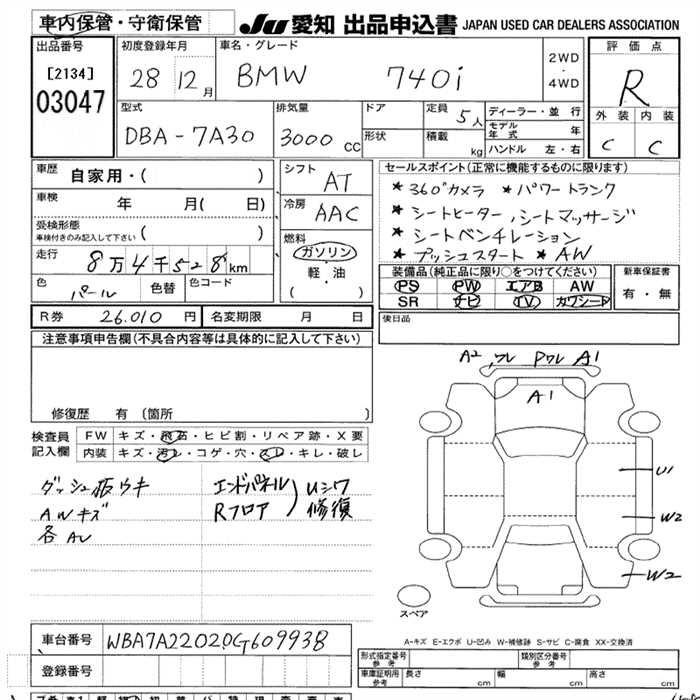 車内保管・守衛保管
JU 愛知 出品申込書 JAPAN USED CAR DEALERS ASSOCIATION
出品番号
[2134]
03047
初度登録年月
28 12月
車名・グレード
BMW 740i
2WD
・
4WD
評価点
R
外装 内装
C C
型式
DBA-7A30
排気量
3000 CC
ドア
形状
定員 5人
積載 kg
ディーラー・並行
モデル年式 年
ハンドル 左・右
車歴
自家用・( )
車検 年 月( 日)
受検形態
車検付きのみ記入して下さい ( )
走行 8万4千528km
色 パール 色替 色コード
シフト AT
冷房 AAC
燃料
ガソリン
・
軽・油
( )
セールスポイント(正常に機能するものに限ります)
* 360°カメラ * パワートランク
* シートヒーター,シートマッサージ
* シートベンチレーション
* プッシュスタート * AW
装備品(純正品に限り○をつけてください)
PS PW エアB AW
SR ナビ TV カワシート
新車保証書
有・無
R券 26.010円 名変期限 月 日
後日品
注意事項申告欄(不具合内容等は具体的に記入して下さい)
修復歴 有(箇所
検査員記入欄
FW キズ・飛石・ヒビ割・リペア跡・X要
内装 キズ・汚レ・コゲ・穴・スレ・キレ・破レ
ダッシュ板ウキ エンドパネル Uシワ
AWキズ Rフロア 修復
A2,ワレ Pワレ A1
A1
U1
W2
W2
スペア
A-キズ E-エクボ U-凹み W-補修跡 S-サビ C-腐食 XX-交換済
車台番号 WBA7A22020G609938
登録番号
形式指定番号 参考 類別区分番号 参考
車庫証明用 参考 長さ cm 幅 cm 高さ cm